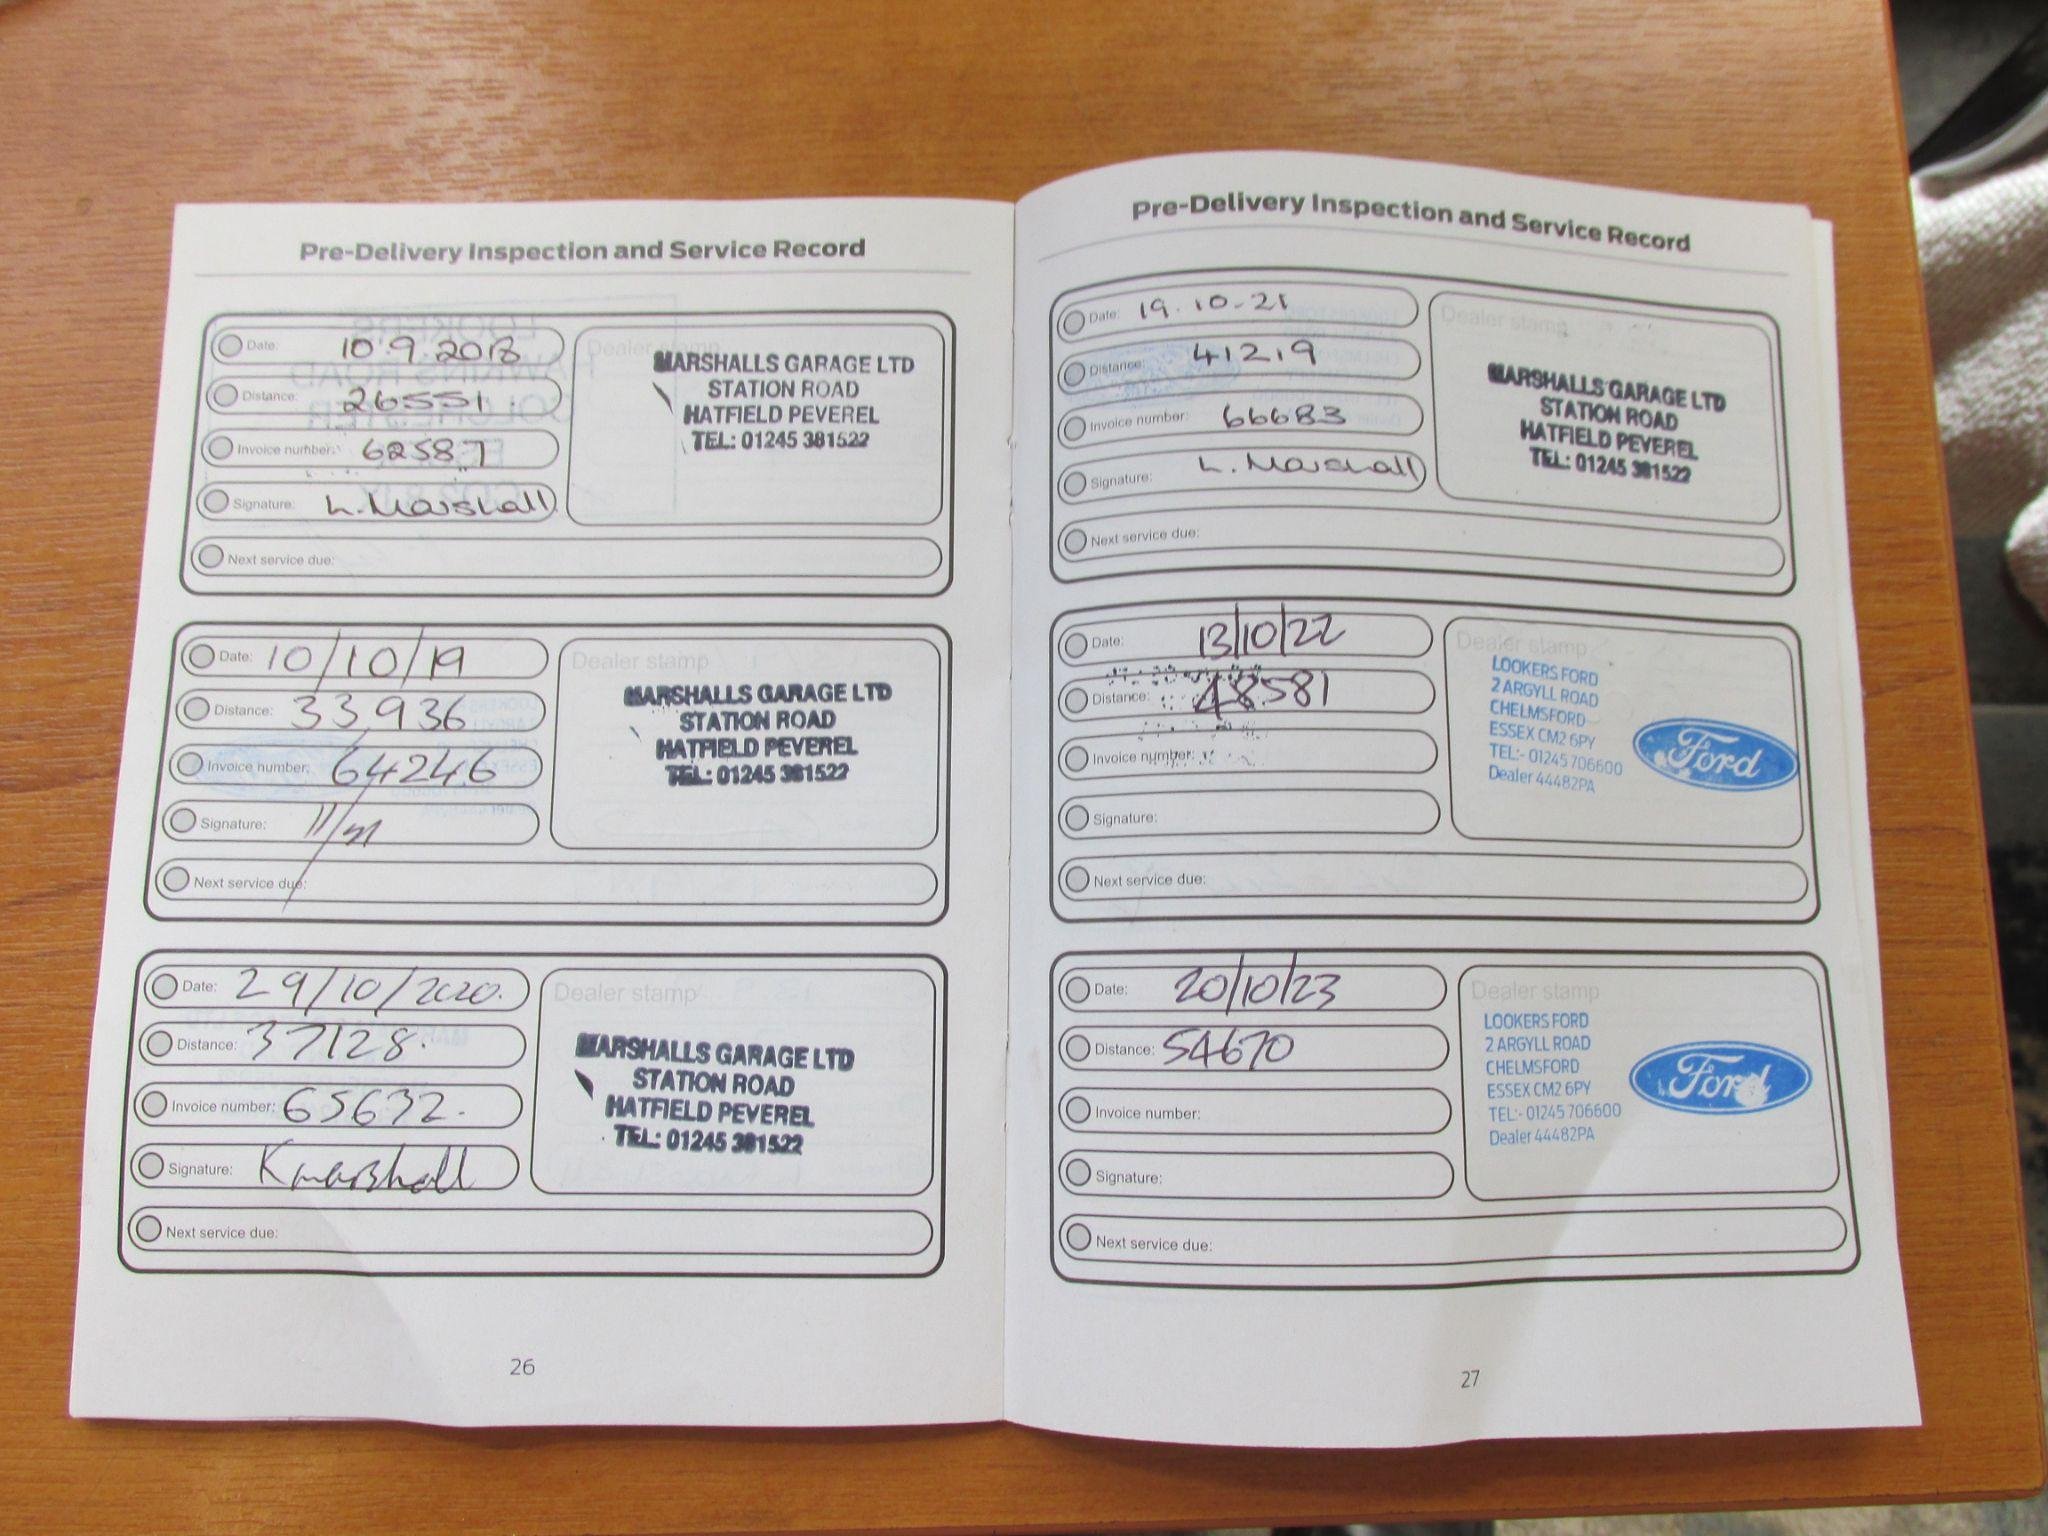 Pre-Delivery Inspection and Service Record
Date: 10.9.2018
Distance: 26551
Invoice number: 62587
Signature: L. Marshall
Next service due:
Dealer stamp
MARSHALLS GARAGE LTD
STATION ROAD
HATFIELD PEVEREL
TEL: 01245 381522
Date: 10/10/19
Distance: 33936
Invoice number: 64246
Signature:
Next service due:
Dealer stamp
MARSHALLS GARAGE LTD
STATION ROAD
HATFIELD PEVEREL
TEL: 01245 381522
Date: 29/10/2020.
Distance: 37128.
Invoice number: 65632.
Signature: K marshall
Next service due:
Dealer stamp
MARSHALLS GARAGE LTD
STATION ROAD
HATFIELD PEVEREL
TEL: 01245 381522
26
Pre-Delivery Inspection and Service Record
Date: 19.10-21
Distance: 41219
Invoice number: 66683
Signature: L. Marshall
Next service due:
Dealer stamp
MARSHALLS GARAGE LTD
STATION ROAD
HATFIELD PEVEREL
TEL: 01245 381522
Date: 13/10/22
Distance: 48581
Invoice number:
Signature:
Next service due:
Dealer stamp
LOOKERS FORD
2 ARGYLL ROAD
CHELMSFORD
ESSEX CM2 6PY
TEL:- 01245 706600
Dealer 44482PA
Ford
Date: 20/10/23
Distance: 54670
Invoice number:
Signature:
Next service due:
Dealer stamp
LOOKERS FORD
2 ARGYLL ROAD
CHELMSFORD
ESSEX CM2 6PY
TEL:- 01245 706600
Dealer 44482PA
Ford
27